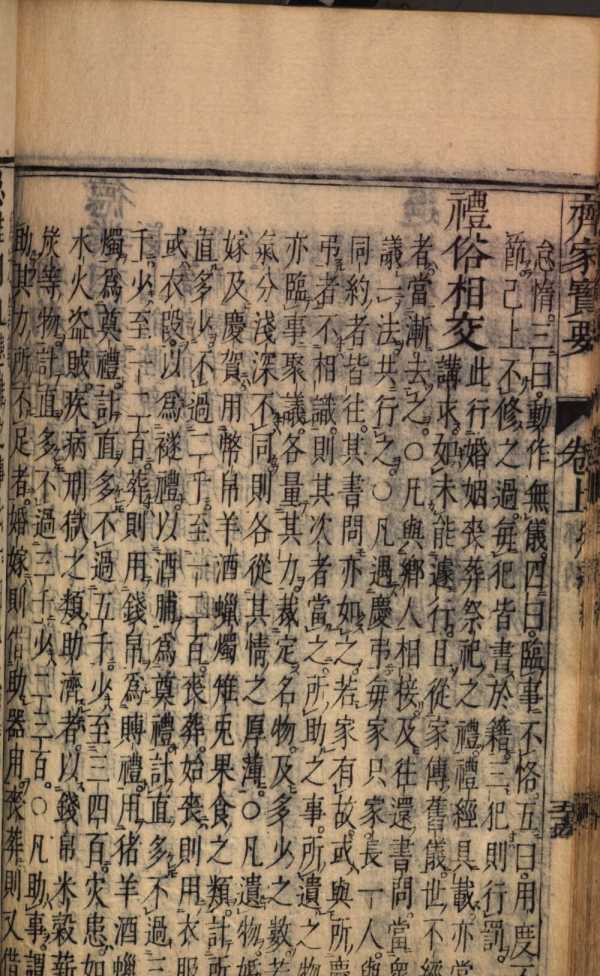 齊家寶要
卷上
怠惰三曰動作無儀四曰臨事不恪五曰用度
節已上不修之過每犯皆書於籍三犯則行罰
禮俗相交
此行婚姻喪葬祭祀之禮禮經具載亦當
講求如未能遽行且從家傳舊儀世不經
者當漸去之○凡與鄉人相接及往還書問當衆
議一法共行之○凡遇慶弔每家只家長一人與
同約者皆往其書問亦如之若家有故或與所慶
弔者不相識則其次者當之所助之事所遺之物
亦臨事聚議各量其力裁定名物及多少之數若
氣分淺深不同則各從其情之厚薄○凡遺物婚
嫁及慶賀用幣帛羊酒蠟燭雉兎果食之類計所
直多少不過三千至一二百喪葬始喪則用衣服
或衣段以爲襚禮以酒脯爲奠禮計直多不過三
千少至一二百葬則用錢帛爲賻禮用猪羊酒蠟
燭爲奠禮計直多不過五千少至三四百災患如
水火盗賊疾病刑獄之類助濟者以錢帛米榖薪
炭等物計直多不過三千少二三百○凡助事謂
助其力所不足者婚嫁則借助器用喪葬則又借